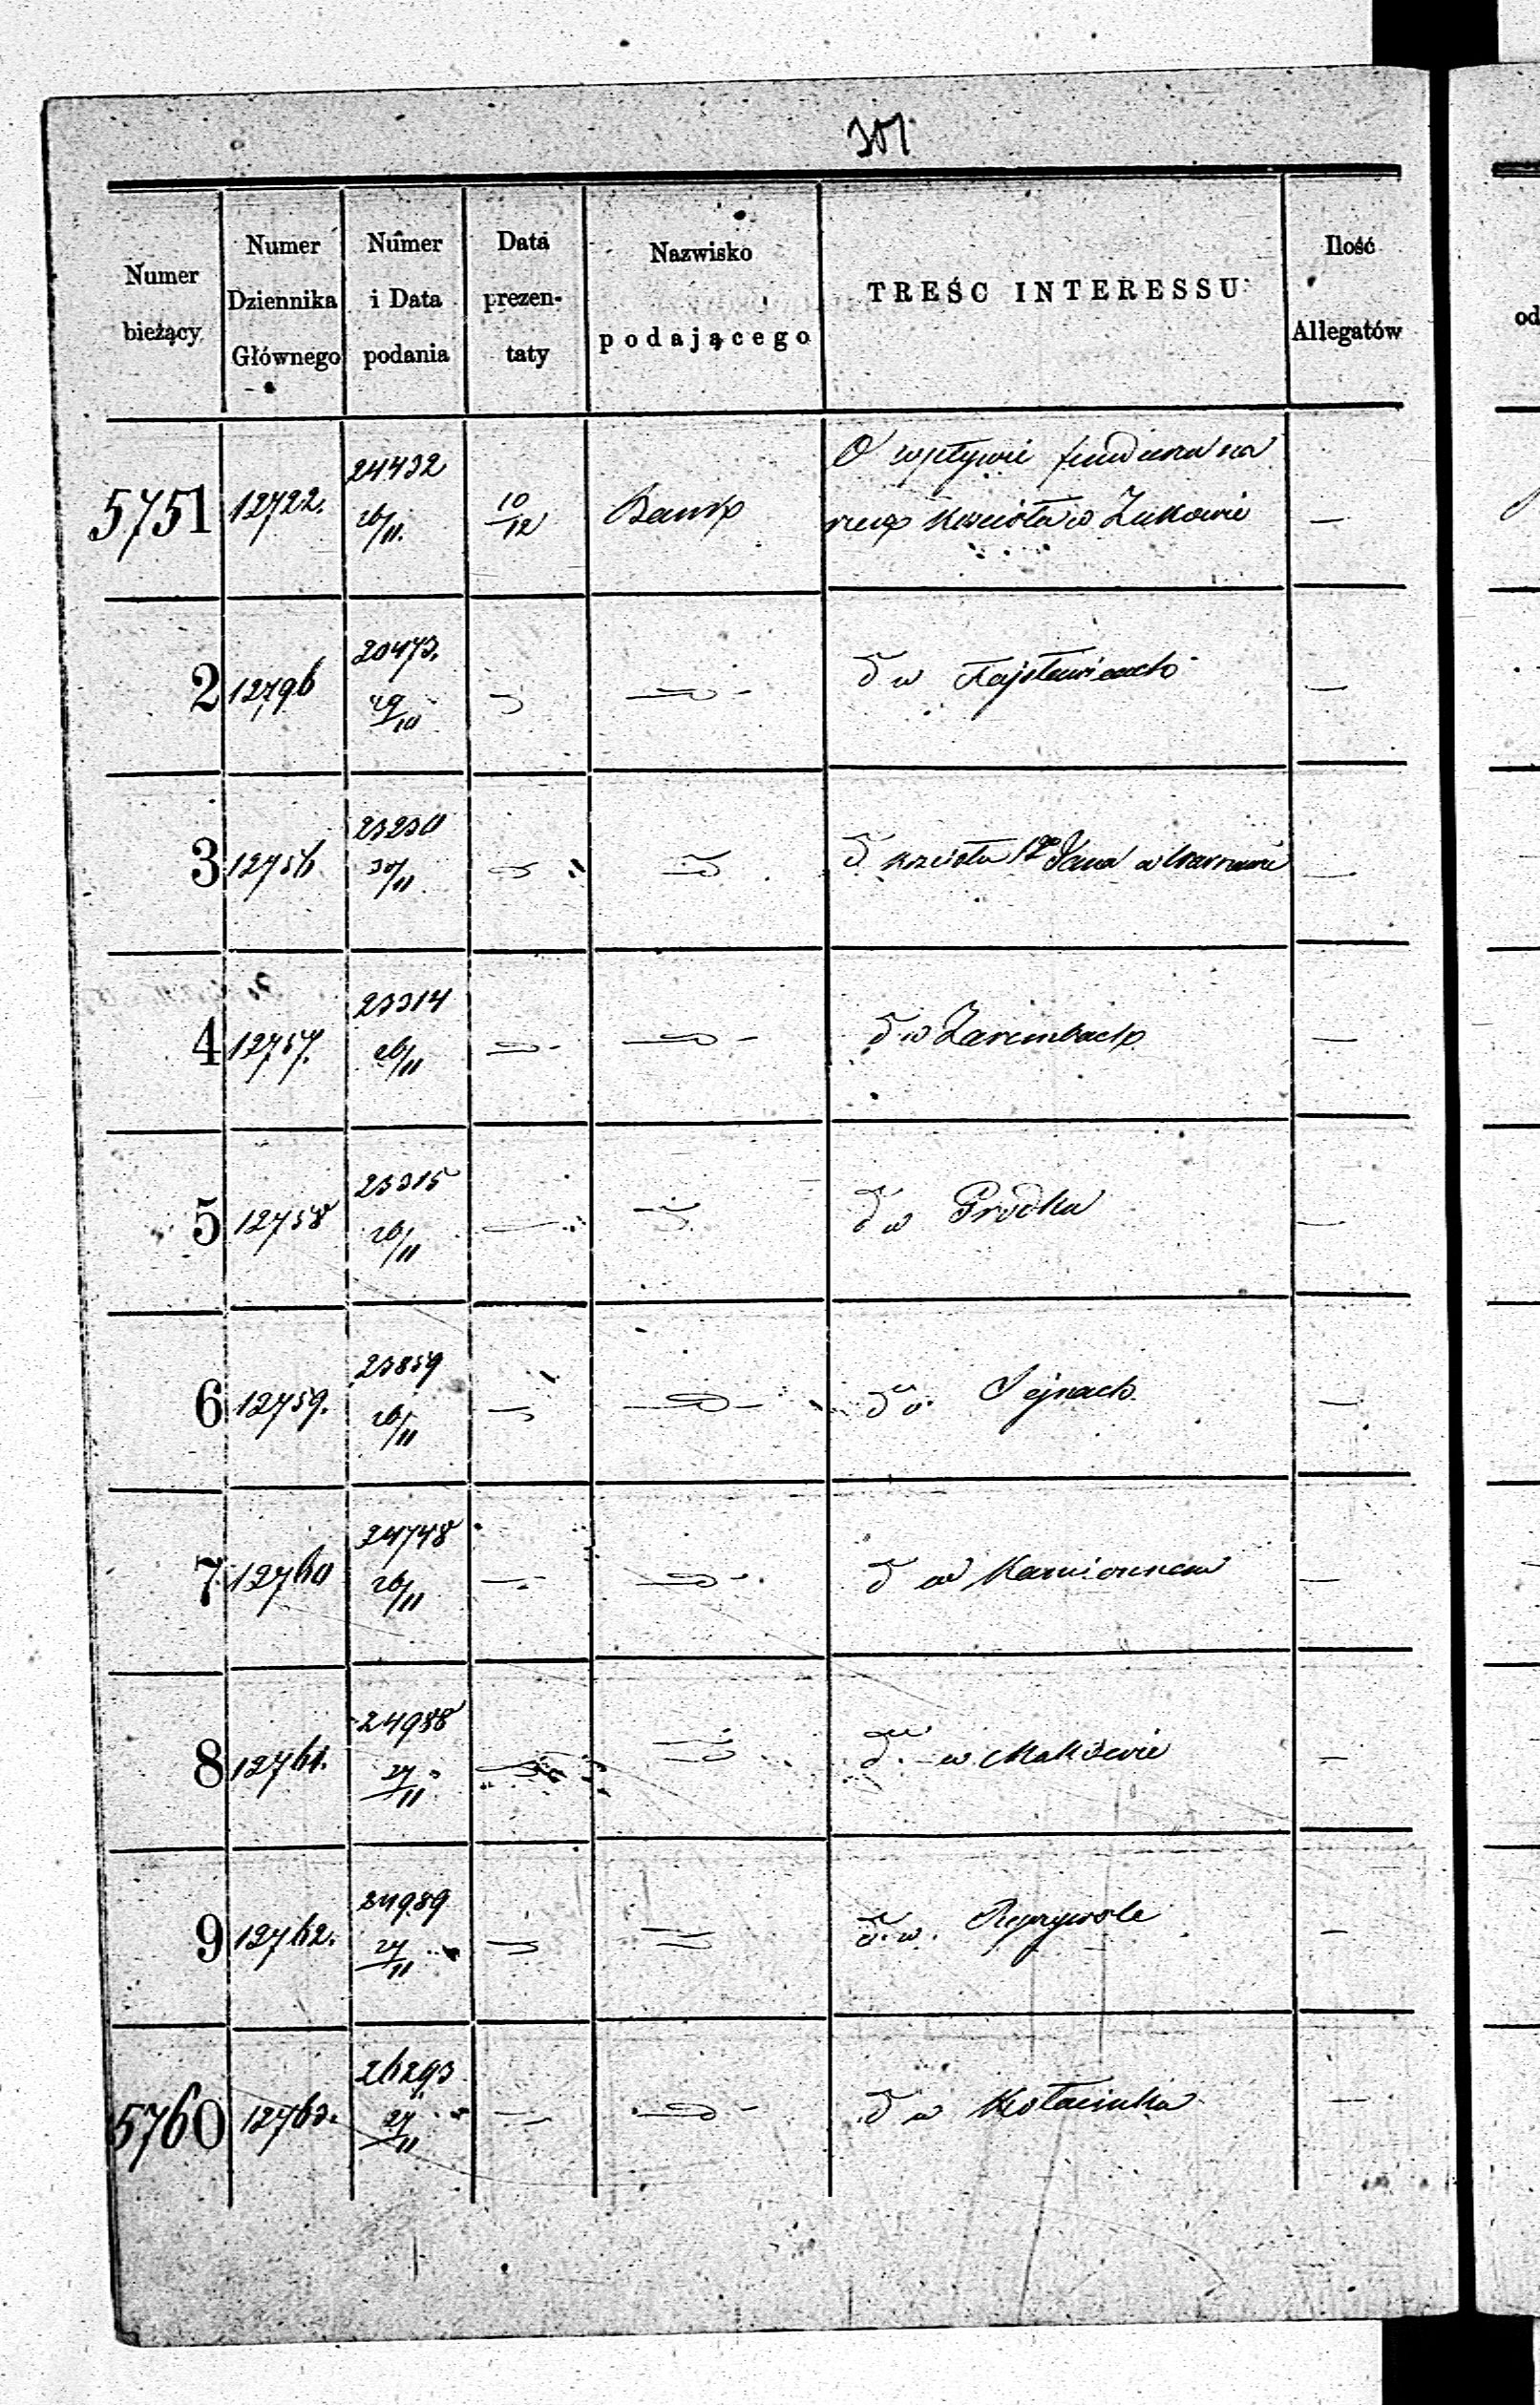 301
Numer bieżący
Numer Dziennika Głównego
Numer i Data podania
Data prezen- taty
Nazwisko podającego
TREŚC INTERESSU
Ilość Allegatów
5751 12722. 24432 26/11. 10/12 Bank O wpływie funduszu na —
rzecz kościoła w Żukowie
2 12796 20473. 29/10 — — do w Fajsławicach —
3 12756 23230 30/11 — — do kościoła Sgo Jana w Warszawie —
4 12757. 23314 26/11 — — do w Zarembach —
5 12758 23315 26/11 — — do w —
6 12759. 23859 26/11 — — do w Sejnach —
7 12760 24748 26/11 — — do w Kamionnem —
8 12761. 24988 27/11 — — do w Makowie —
9 12762. 24989 27/11 — — do w —
5760 12763. 26293 27/11 — — do w Kołacinku —
od